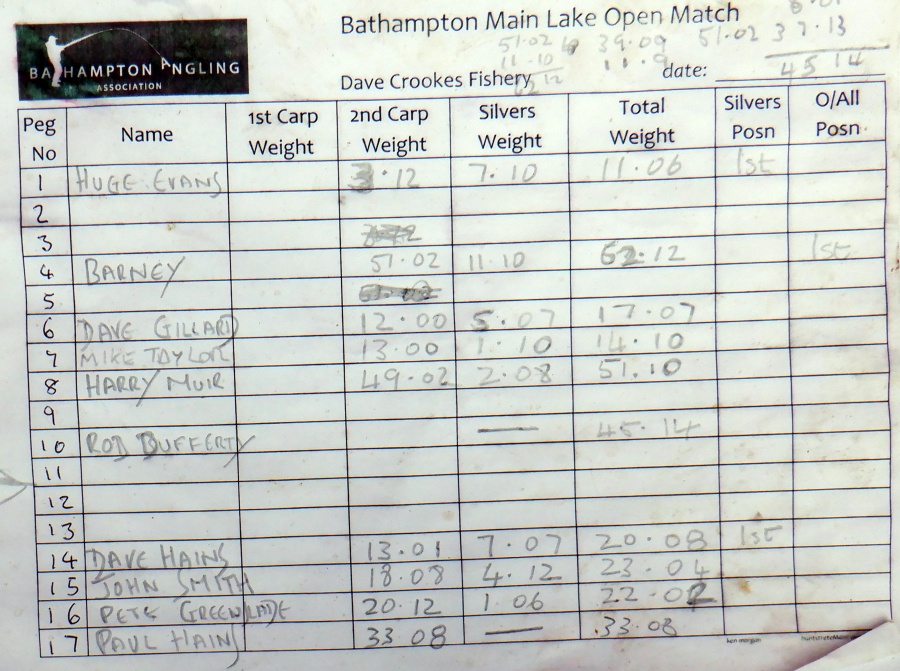 BATHAMPTON ANGLING
ASSOCIATION
Bathampton Main Lake Open Match
51.02 39.09 51.02 37.13
11.10 11.9 45 14
Dave Crookes Fishery date:
Peg No Name 1st Carp Weight 2nd Carp Weight Silvers Weight Total Weight Silvers Posn O/All Posn.
1 HUGE EVANS 3.12 7.10 11.06 1st
2
3
4 BARNEY 51.02 11.10 62.12 1st
5
6 DAVE GILLARD 12.00 5.07 17.07
7 MIKE TAYLOR 13.00 1.10 14.10
8 HARRY MUIR 49.02 2.08 51.10
9
10 ROD DUFFERTY — 45.14
11
12
13
14 DAVE HAINS 13.01 7.07 20.08 1st
15 JOHN SMITH 18.08 4.12 23.04
16 PETE GREENSLADE 20.12 1.06 22.02
17 PAUL HAIN 33 08 — 33.08
ken morgan